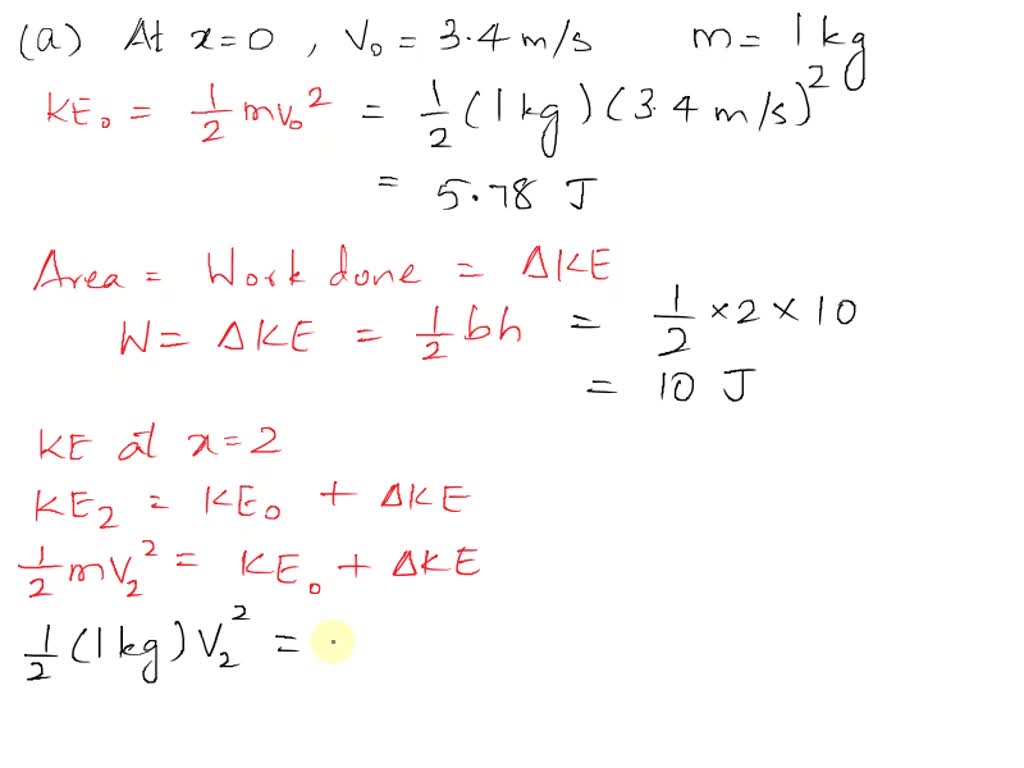 (a) At x=0 , V₀ = 3.4 m/s m= 1 kg
KE₀ = 1/2 mv₀² = 1/2 (1 kg) (3.4 m/s)²
= 5.78 J
Area = Work done = ΔKE
W = ΔKE = 1/2 bh = 1/2 × 2 × 10
= 10 J
KE at x=2
KE₂ = KE₀ + ΔKE
1/2 mV₂² = KE₀ + ΔKE
1/2 (1 kg) V₂² =